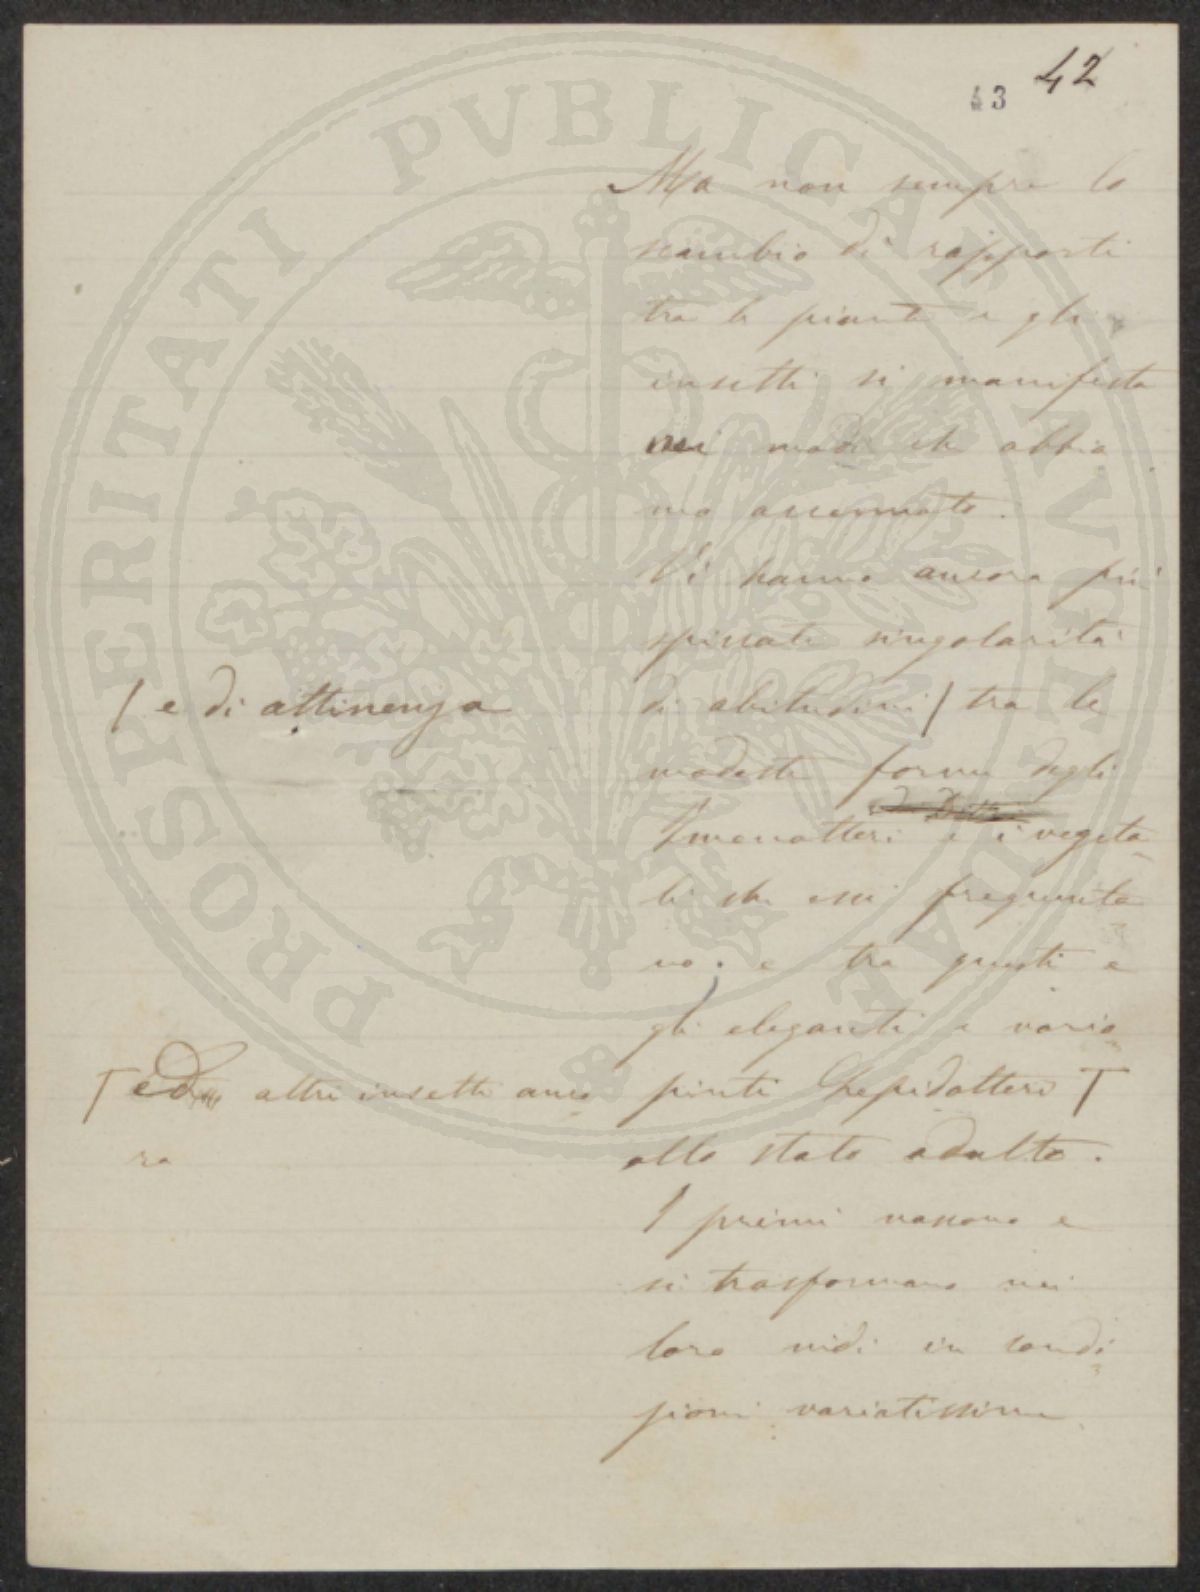 42
43
Ma non sempre lo
scambio di rapporti
tra le piante e gli
insetti si manifesta
nei modi che abbia
mo accennato.
Vi hanno ancora più
spiccate singolarità
/ e di attinenza
di abitudini / tra le
modeste forme degli
Imenotteri e i vegeta
li che essi frequenta
no; e tra questi e
gli eleganti e vario
T ed altri insetti anco
ra
pinti Lepidotteri T
allo stato adulto.
I primi nascono e
si trasformano nei
loro nidi in condi
zioni variatissime
PROSPERITATI PVBLICAE AVGENDAE